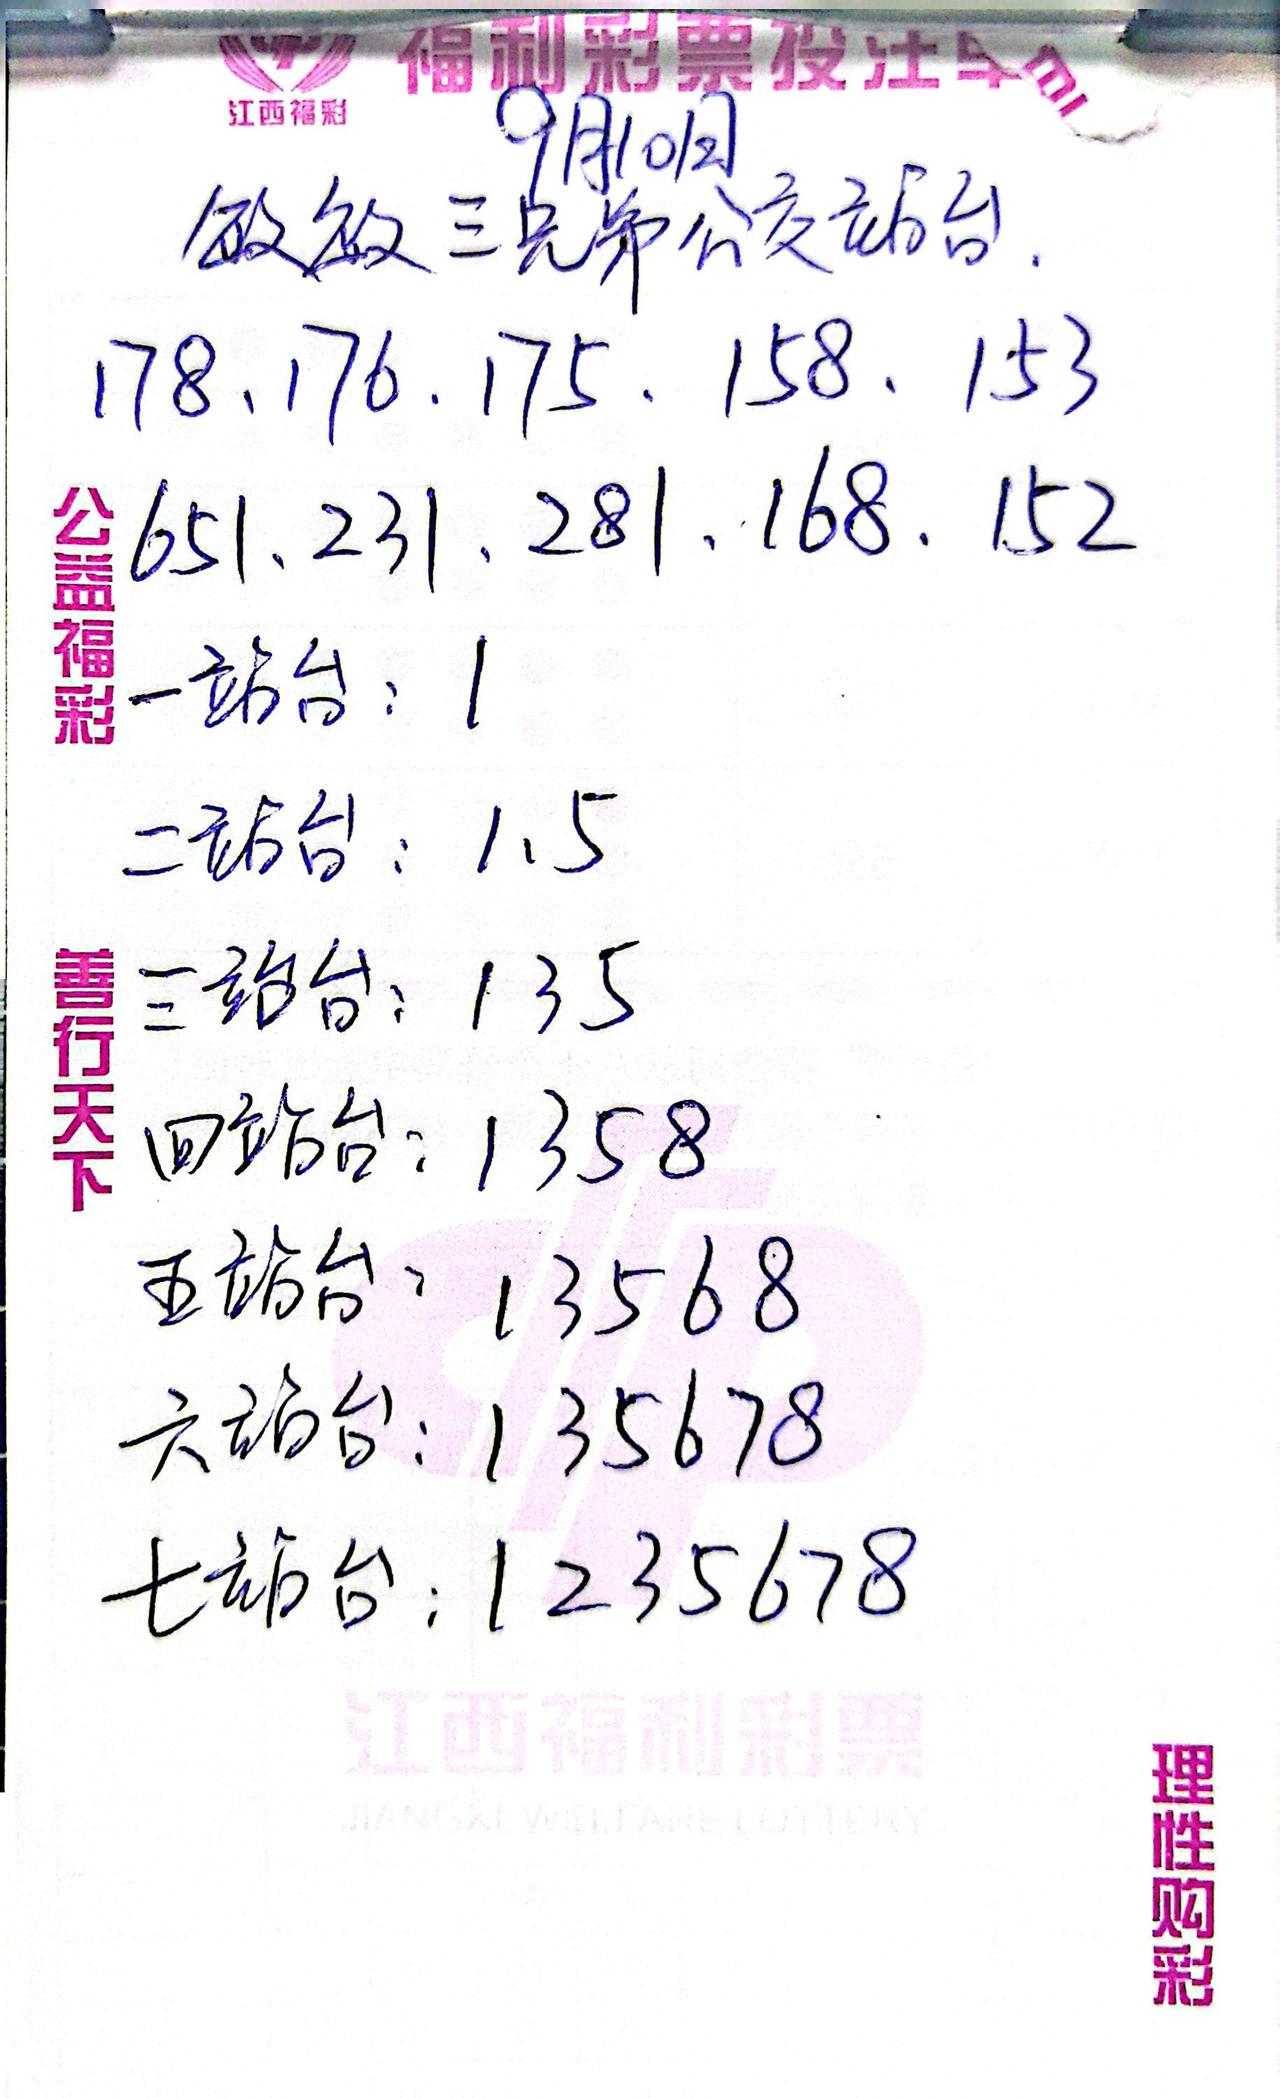 福利彩票投注单
江西福彩
9月10日
敏敏三兄弟公交站台.
178、176.175.158.153
651、231、281.168.152
一站台:1
二站台:1、5
三站台:135
四站台:1358
五站台:13568
六站台:135678
七站台:1235678
公益福彩
善行天下
江西福利彩票
JIANGXI WELFARE LOTTERY
理性购彩